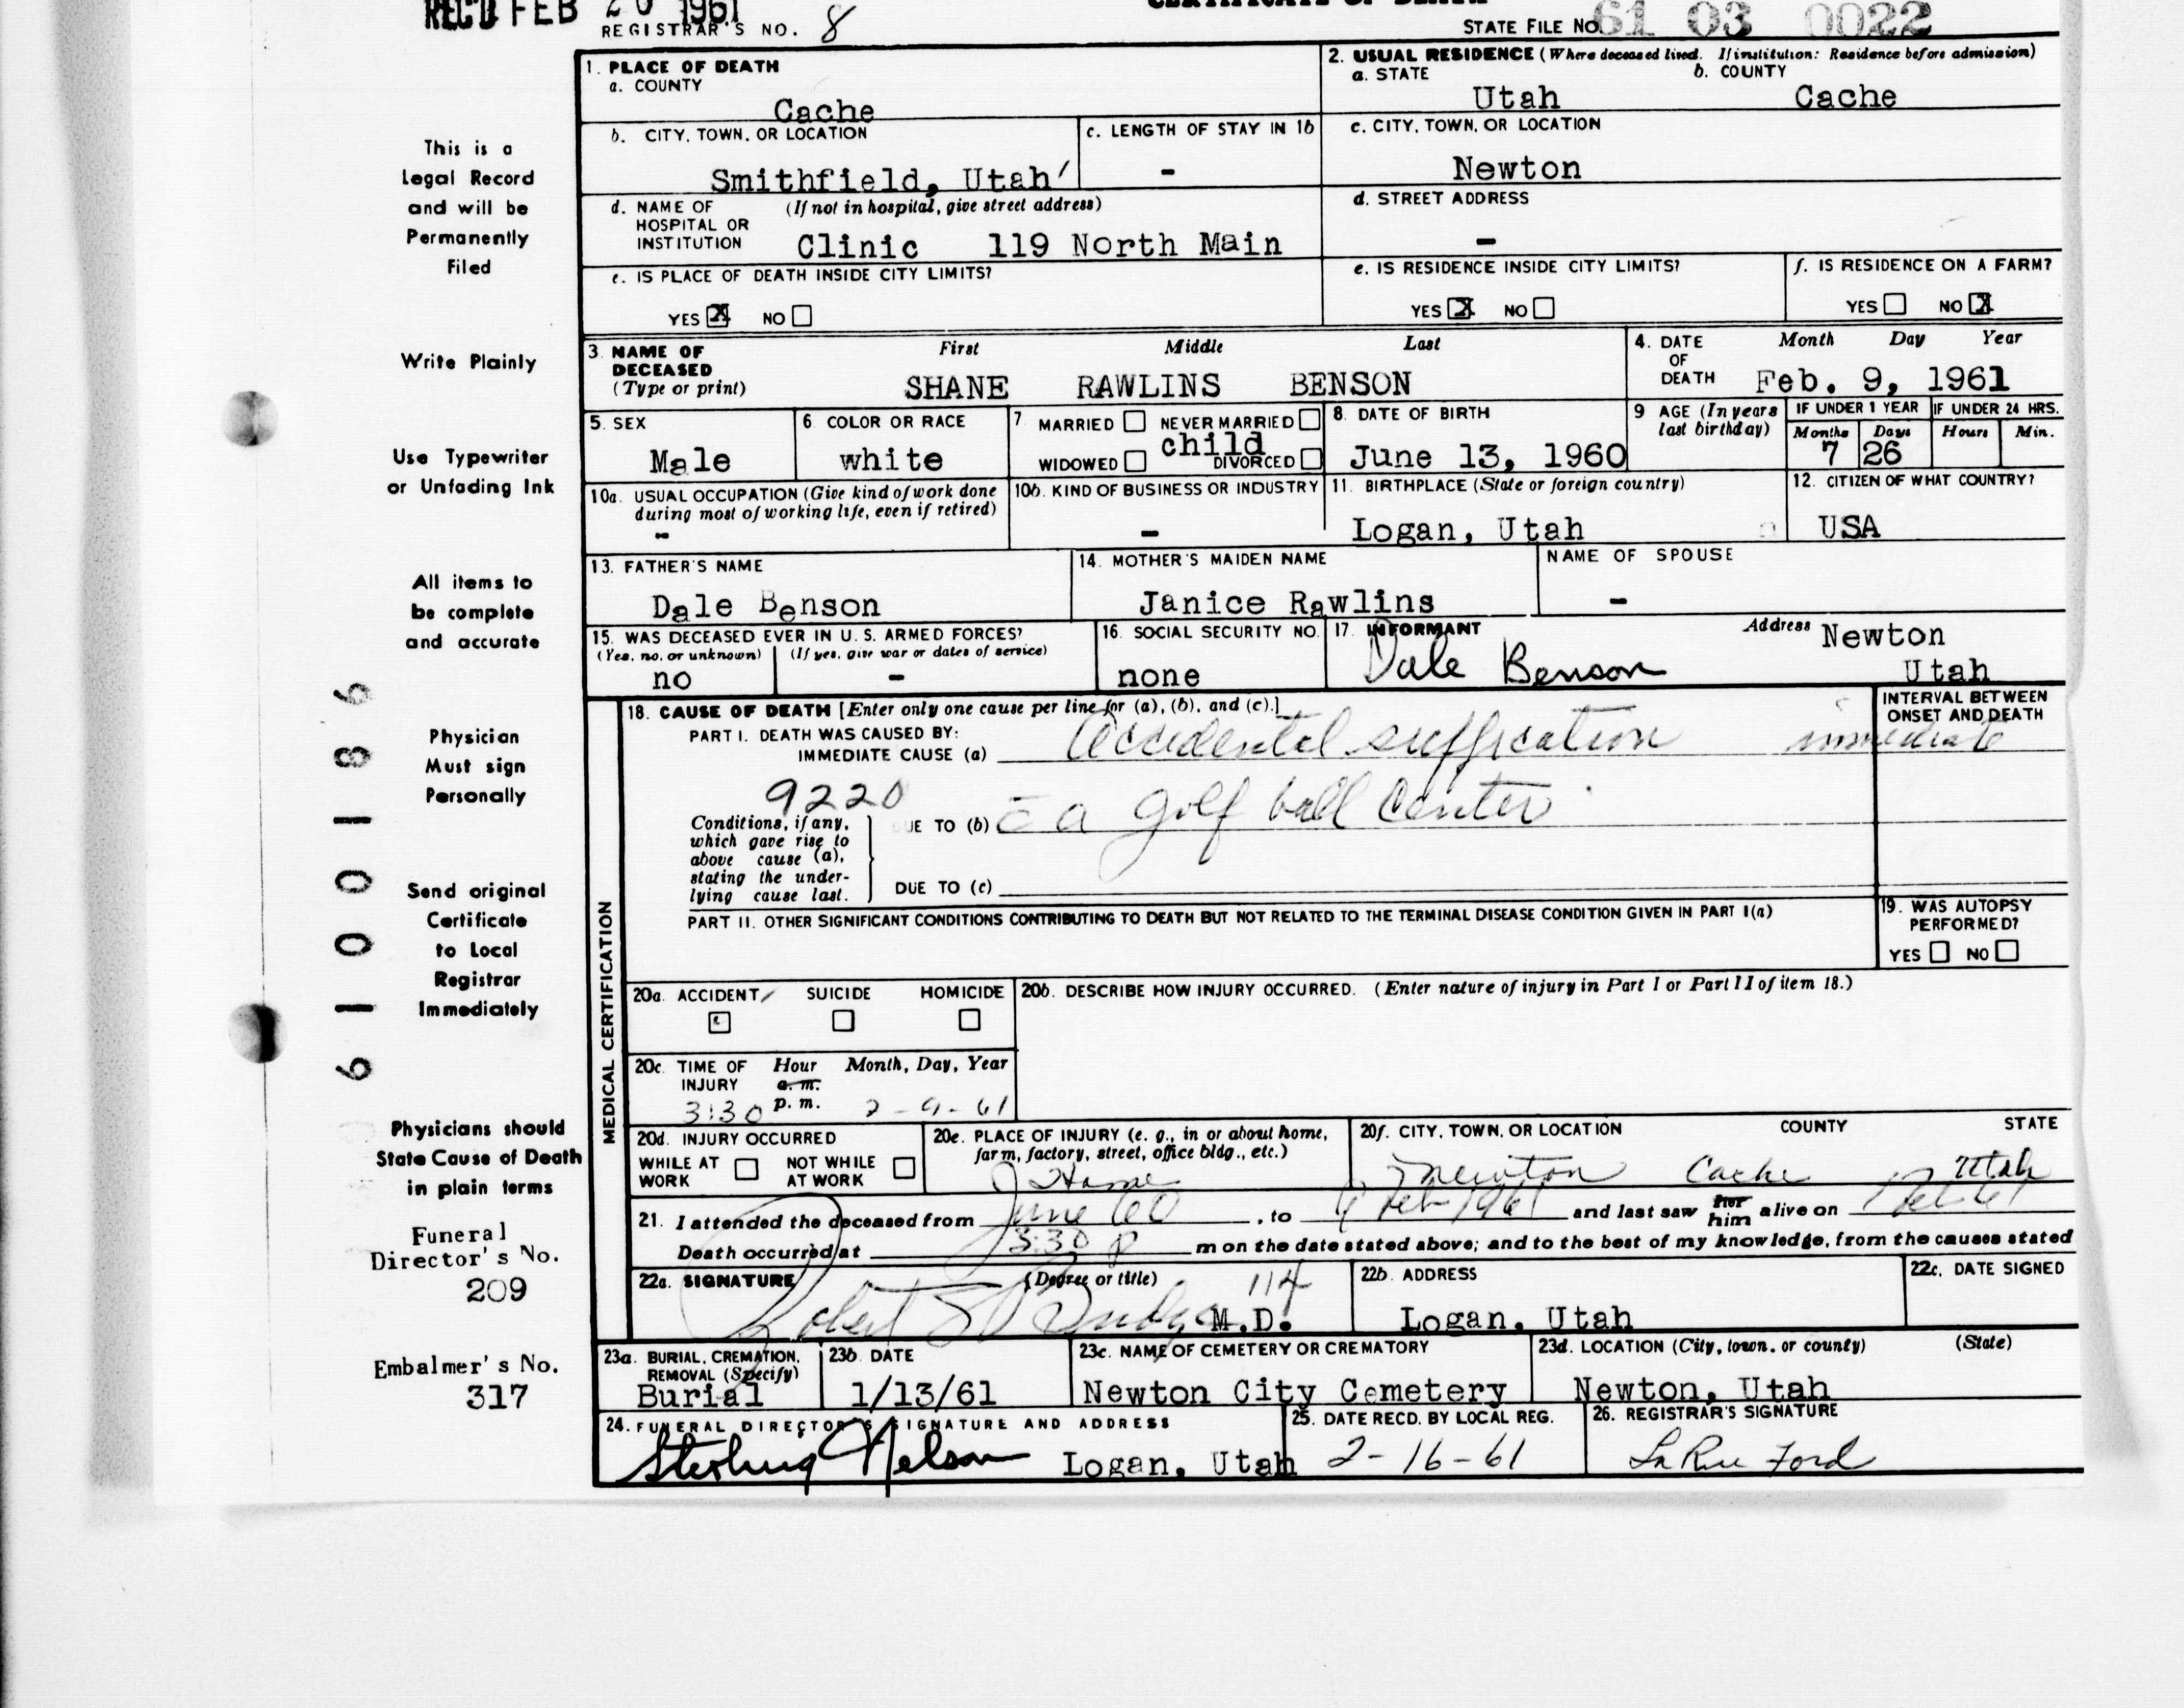 REC'D FEB 20 1961
REGISTRAR'S NO. 8
STATE FILE NO. 61 03 0022
1. PLACE OF DEATH
a. COUNTY
Cache
2. USUAL RESIDENCE (Where deceased lived. If institution: Residence before admission)
a. STATE b. COUNTY
Utah Cache
b. CITY, TOWN, OR LOCATION
Smithfield, Utah
c. LENGTH OF STAY IN 1b
-
c. CITY, TOWN, OR LOCATION
Newton
d. NAME OF (If not in hospital, give street address)
HOSPITAL OR
INSTITUTION Clinic 119 North Main
d. STREET ADDRESS
-
e. IS PLACE OF DEATH INSIDE CITY LIMITS?
YES X NO
e. IS RESIDENCE INSIDE CITY LIMITS?
YES X NO
f. IS RESIDENCE ON A FARM?
YES NO X
3. NAME OF First Middle Last
DECEASED
(Type or print) SHANE RAWLINS BENSON
4. DATE Month Day Year
OF
DEATH Feb. 9, 1961
5. SEX
Male
6. COLOR OR RACE
white
7. MARRIED NEVER MARRIED
child
WIDOWED DIVORCED
8. DATE OF BIRTH
June 13, 1960
9 AGE (In years
last birthday)
IF UNDER 1 YEAR IF UNDER 24 HRS.
Months Days Hours Min.
7 26
10a. USUAL OCCUPATION (Give kind of work done
during most of working life, even if retired)
-
10b. KIND OF BUSINESS OR INDUSTRY
-
11. BIRTHPLACE (State or foreign country)
Logan, Utah
12. CITIZEN OF WHAT COUNTRY?
USA
13. FATHER'S NAME
Dale Benson
14. MOTHER'S MAIDEN NAME
Janice Rawlins
NAME OF SPOUSE
-
15. WAS DECEASED EVER IN U. S. ARMED FORCES?
(Yes, no, or unknown) (If yes, give war or dates of service)
no -
16. SOCIAL SECURITY NO.
none
17. INFORMANT Address Newton
Dale Benson Utah
MEDICAL CERTIFICATION
18. CAUSE OF DEATH [Enter only one cause per line for (a), (b), and (c).]
INTERVAL BETWEEN
ONSET AND DEATH
PART I. DEATH WAS CAUSED BY:
IMMEDIATE CAUSE (a) Accidental suffication immediate
9220
Conditions, if any,
which gave rise to
above cause (a),
stating the under-
lying cause last.
DUE TO (b) c̄ a golf ball center
DUE TO (c)
PART II. OTHER SIGNIFICANT CONDITIONS CONTRIBUTING TO DEATH BUT NOT RELATED TO THE TERMINAL DISEASE CONDITION GIVEN IN PART I(a)
19. WAS AUTOPSY
PERFORMED?
YES NO
20a. ACCIDENT SUICIDE HOMICIDE
20b. DESCRIBE HOW INJURY OCCURRED. (Enter nature of injury in Part I or Part II of item 18.)
20c. TIME OF Hour Month, Day, Year
INJURY a. m.
3:30 p. m. 2-9-61
20d. INJURY OCCURRED
WHILE AT NOT WHILE
WORK AT WORK
20e. PLACE OF INJURY (e. g., in or about home,
farm, factory, street, office bldg., etc.)
Home
20f. CITY, TOWN, OR LOCATION COUNTY STATE
Newton Cache Utah
21. I attended the deceased from June 60, to 9 Feb 1961 and last saw her him alive on Feb 61
Death occurred at 3:30 P m on the date stated above; and to the best of my knowledge, from the causes stated
22a. SIGNATURE (Degree or title) 114
Robert M.D.
22b. ADDRESS
Logan, Utah
22c. DATE SIGNED
23a. BURIAL, CREMATION,
REMOVAL (Specify)
Burial
23b. DATE
1/13/61
23c. NAME OF CEMETERY OR CREMATORY
Newton City Cemetery
23d. LOCATION (City, town, or county) (State)
Newton, Utah
24. FUNERAL DIRECTOR'S SIGNATURE AND ADDRESS
Sterling Nelson Logan, Utah
25. DATE RECD. BY LOCAL REG.
2-16-61
26. REGISTRAR'S SIGNATURE
LaRue Ford
This is a
Legal Record
and will be
Permanently
Filed
Write Plainly
Use Typewriter
or Unfading Ink
All items to
be complete
and accurate
Physician
Must sign
Personally
Send original
Certificate
to Local
Registrar
Immediately
Physicians should
State Cause of Death
in plain terms
Funeral
Director's No.
209
Embalmer's No.
317
61001869